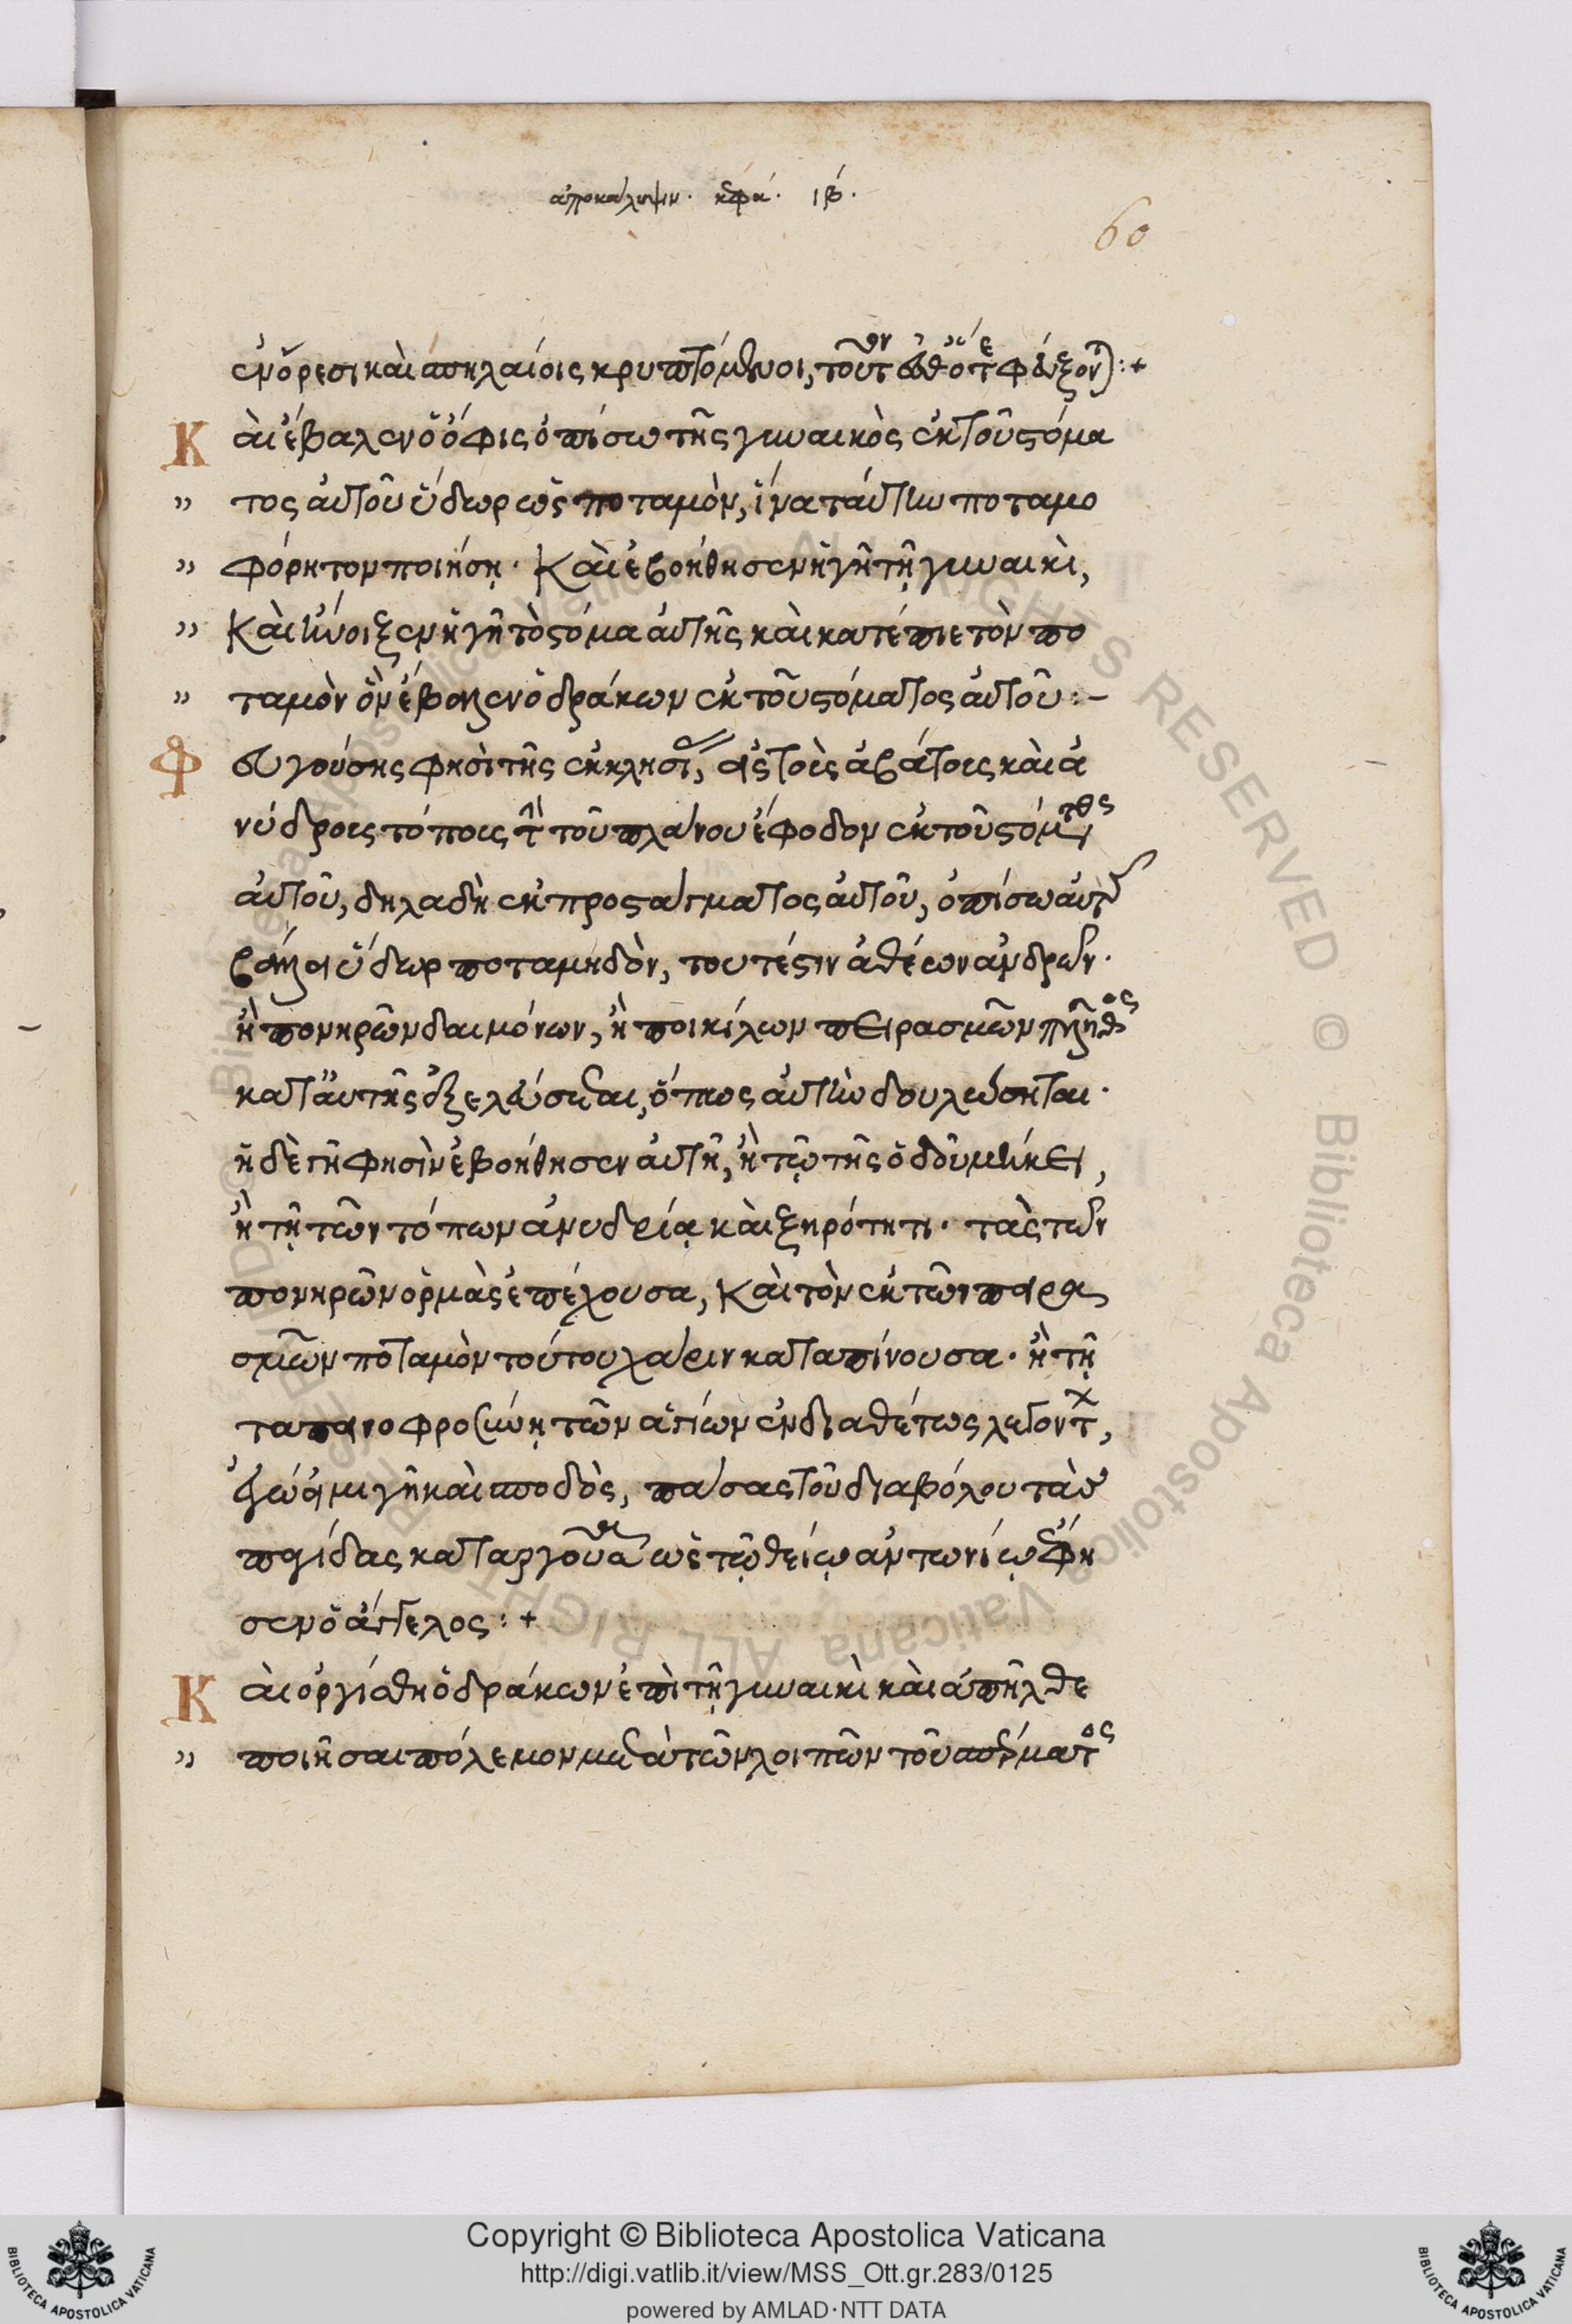 ἀποκάλυψιν. κεφά. ιβ.
60
ἐν ὄρεσι καὶ σπηλαίοις κρυπτόμενοι, τοῦτον τότε φεύξονται :+
Καὶ ἔβαλεν ὁ ὄφις ὀπίσω τῆς γυναικὸς ἐκ τοῦ στόμα
" τος αὐτοῦ ὕδωρ ὡς ποταμὸν, ἵνα ταύτην ποταμο
" φόρητον ποιήσῃ. Καὶ ἐβοήθησεν ἡ γῆ τῇ γυναικὶ,
" Καὶ ἤνοιξεν ἡ γῆ τὸ στόμα αὐτῆς καὶ κατέπιε τὸν πο
" ταμὸν ὃν ἔβαλεν ὁ δράκων ἐκ τοῦ στόματος αὐτοῦ :-
Φευγούσης φησὶ τῆς ἐκκλησίας, εἰς τοὺς ἀβάτους καὶ ἀ
νύδρους τόπους τὴν τοῦ πλάνου ἔφοδον ἐκ τοῦ στόματος
αὐτοῦ, δηλαδὴ ἐκ προστάγματος αὐτοῦ, ὀπίσω αὐτῆς
βάλλει ὕδωρ ποταμηδὸν, τουτέστιν ἀθέων ἀνδρῶν.
ἢ πονηρῶν δαιμόνων, ἢ ποικίλων πειρασμῶν πλῆθος
κατ' αὐτῆς ἐξελεύσεται, ὅπως αὐτὴν δουλώσηται.
ἡ δὲ γῆ φησὶν ἐβοήθησεν αὐτῇ, ἢ τῷ τῆς ὁδοῦ μήκει,
ἢ τῇ τῶν τόπων ἀνυδρίᾳ καὶ ξηρότητι. τὰς τῶν
πονηρῶν ὁρμὰς ἐπέχουσα, Καὶ τὸν ἐκ τῶν πειρα
σμῶν ποταμὸν τούτου χάριν καταπίνουσα. ἢ τῇ
ταπεινοφροσύνῃ τῶν ἁγίων ἐνδιαθέτως λεγόντων,
ἐγώ εἰμι γῆ καὶ σποδὸς, πάσας τοῦ διαβόλου τὰς
παγίδας καταργοῦσα ὡς τῷ θείῳ ἀντωνίῳ ἔφη
σεν ὁ ἄγγελος :+
Καὶ ὀργίσθη ὁ δράκων ἐπὶ τῇ γυναικὶ καὶ ἀπῆλθε
" ποιῆσαι πόλεμον μετὰ τῶν λοιπῶν τοῦ σπέρματος
Copyright © Biblioteca Apostolica Vaticana
http://digi.vatlib.it/view/MSS_Ott.gr.283/0125
powered by AMLAD·NTT DATA